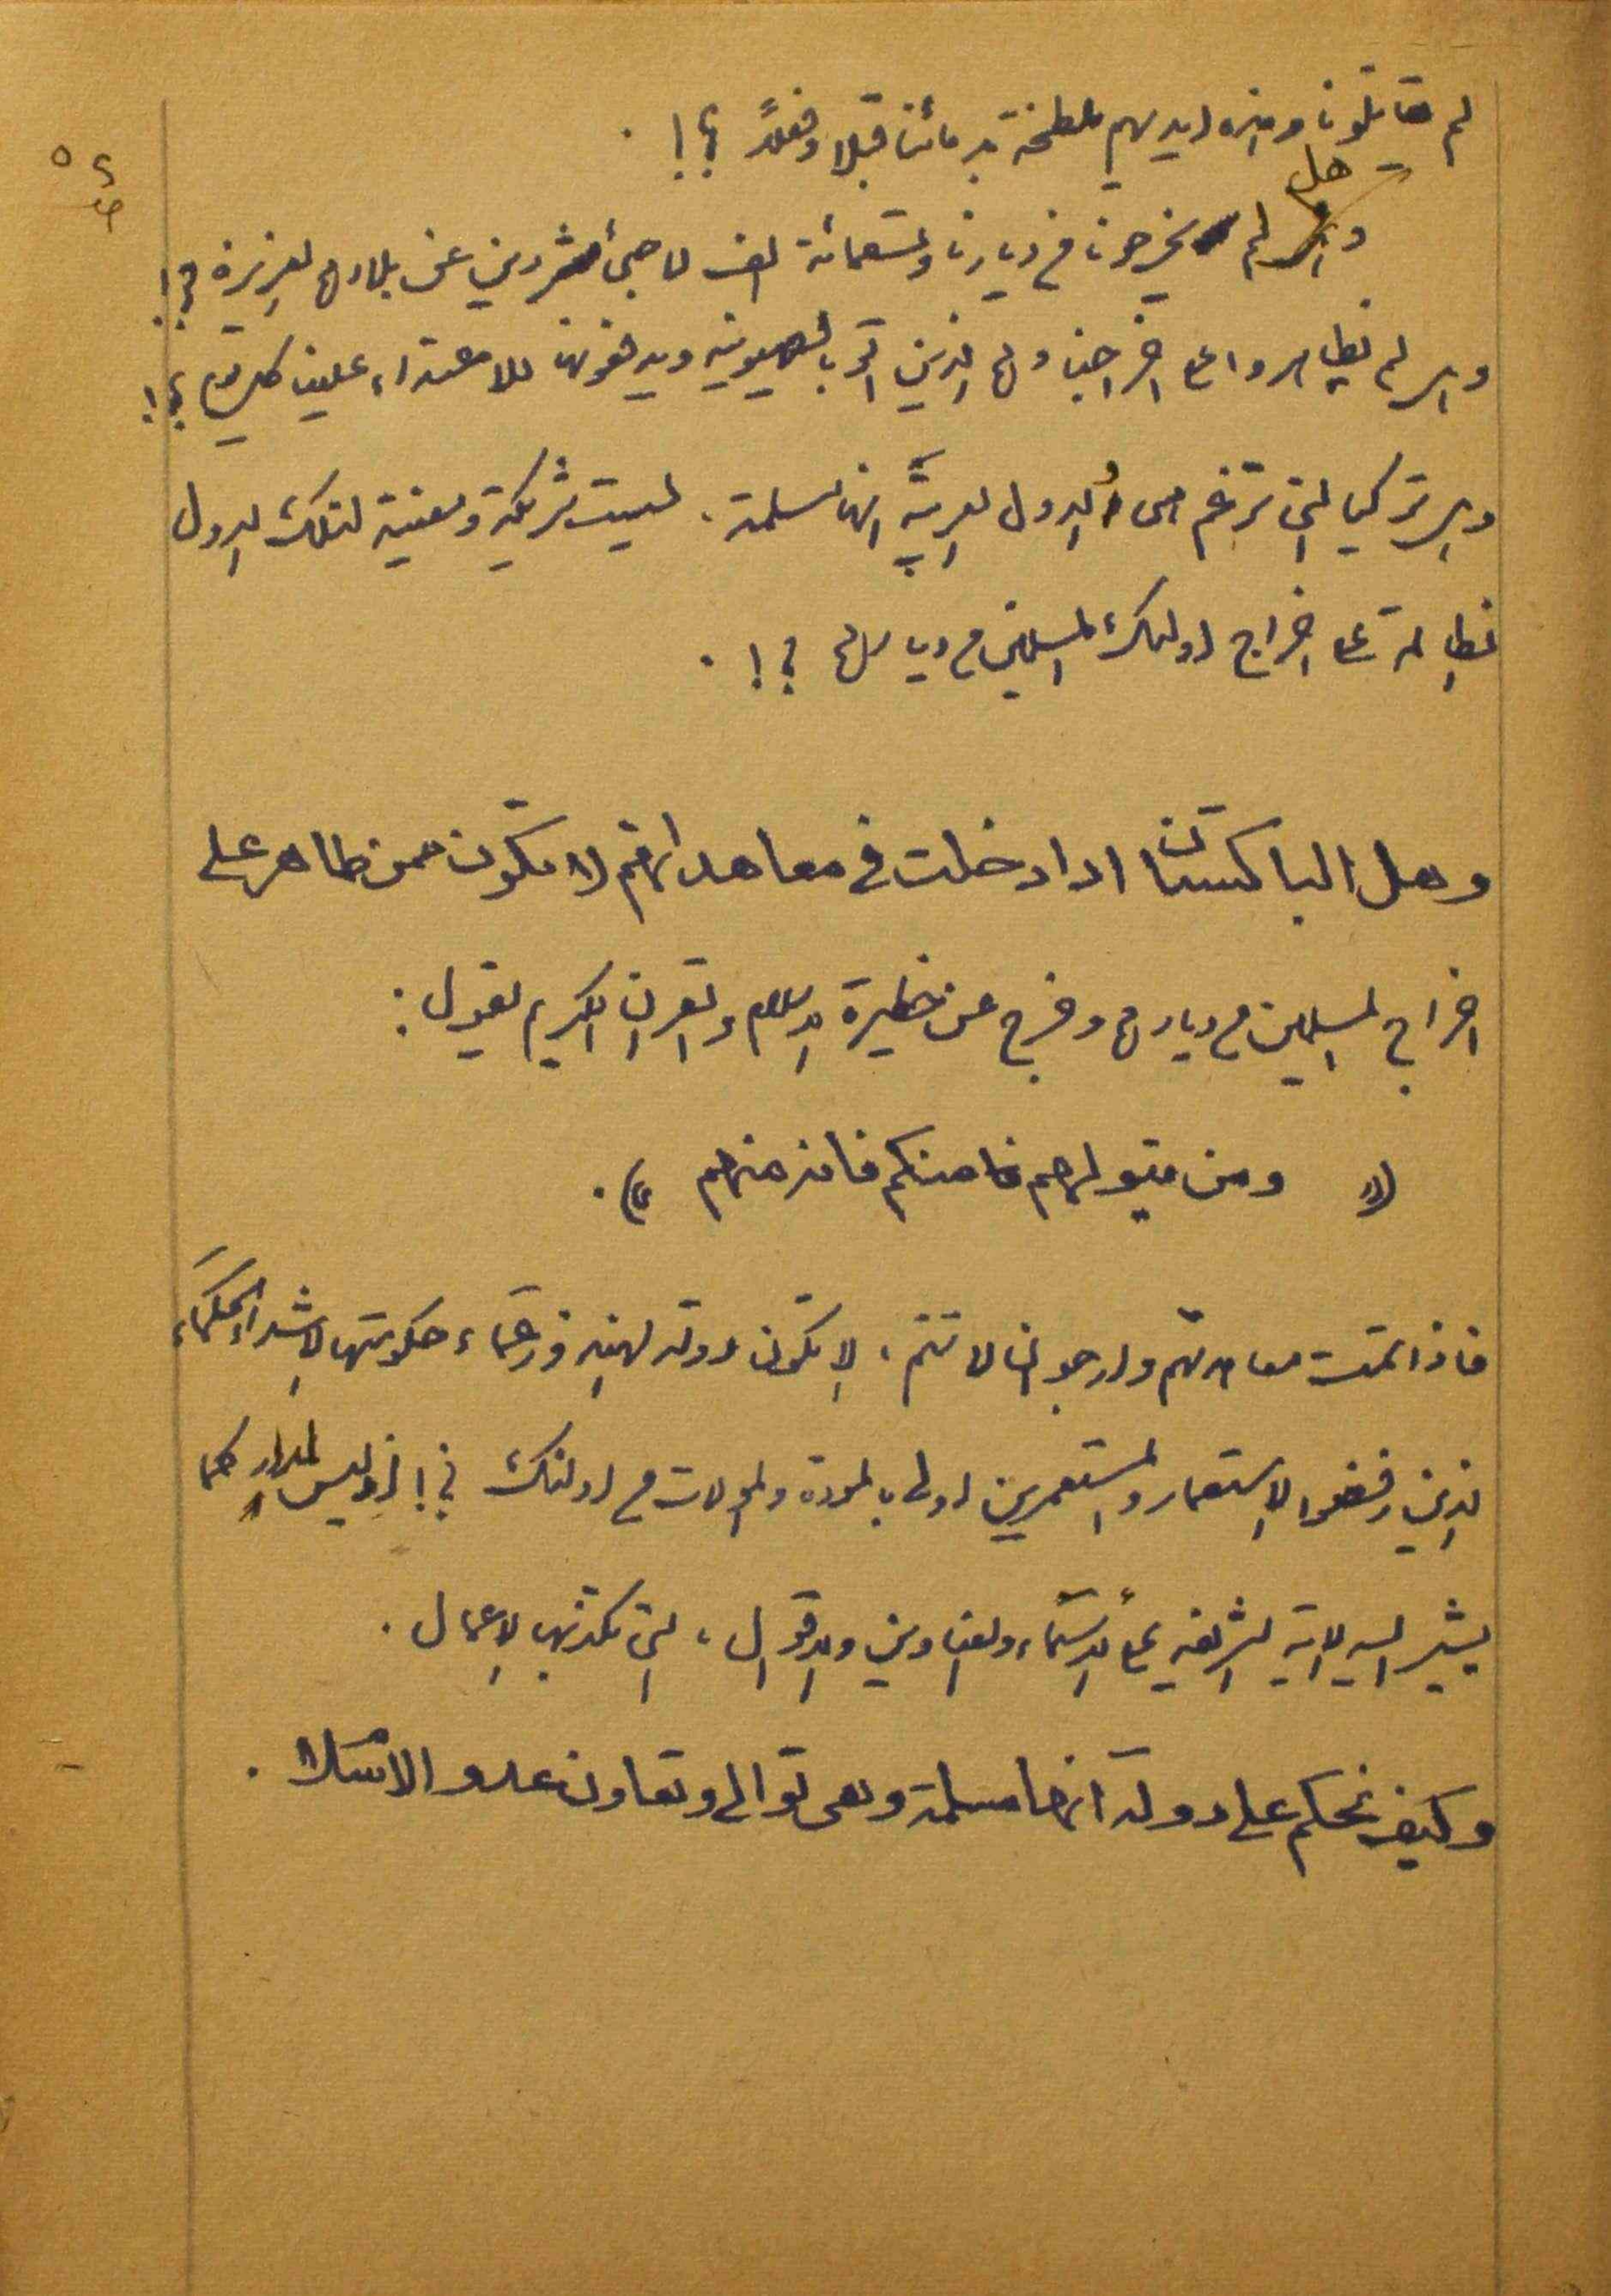 لم يقاتلونا وهذه ايديهم ملطخة بدمائنا قبلا وفعلاً ؟! .
هل
وهل لم يخرجونا من ديارنا وتسعمائة الف لاجئ مشردين عن بلادهم العزيزة ؟!
وهل لم يظاهروا على اخراجنا وهم الذين اتوا بالصهيونية ويدفعونها للاعتداء علينا كل يوم ؟!
وهل تركيا التي ترغم الدول العربية انها مسلمة . ليست شريكة ومعنية لتلك الدول
الظالمة على اخراج اولئك المسلمين من ديارهم ؟! .
وهل الباكستان اذا دخلت في معاهداتهم لا تكون ممن ظاهر على
اخراج المسلمين من ديارهم وخرج عن حظيرة الاسلام والقرآن الكريم يقول :
(( ومن يتولهم منكم فانه منهم )) .
فاذا تمت معاهدتهم وارجو ان لا تتم ، الا تكون دولة الهند وزعماء حكومتها الاشداء الحكماء
الذين رفضوا الاستعمار والمستعمرين اولى بالمودة والموالات من اولئك ؟! اذ ليس المدار كما
يشير اليه الاية الشريفة على الاسماء والعناوين والاقوال ، التي تكذبها الاعمال .
وكيف نحكم على دولة انها مسلمة وهي توالي وتعاون عدو الاسلام .